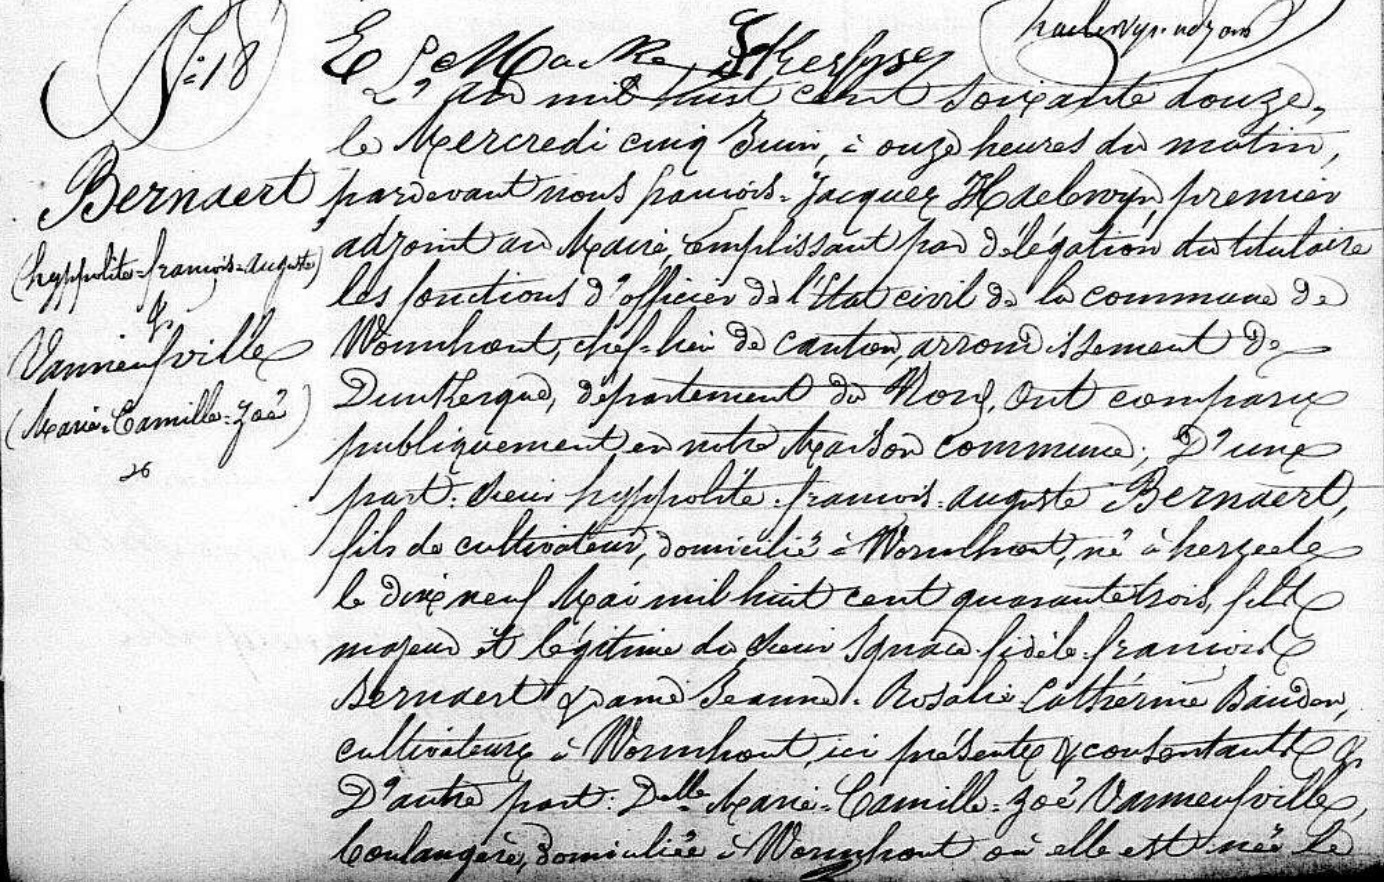 N° 18
Bernaert
(hyppolite=francois=auguste)
&
Vanneufville
(Marie=Camille=Zoë)
26
L'an mil huit cent soixante douze,
le Mercredi cinq Juin, à onze heures du matin,
pardevant nous francois=Jacques Haelewyn, premier
adjoint au Maire, remplissant par délégation du titulaire
les fonctions d'officier de l'Etat civil de la commune de
Wormhout, chef=lieu de canton, arrondissement de
Dunkerque, département du Nord, Ont comparu
publiquement en notre Maison commune; D'une
part: Sieur hyppolite=francois=auguste Bernaert,
fils de cultivateur, domicilié à Wormhout, né à herzeele
le dix neuf Mai mil huit cent quarante trois, fils
majeur et légitime du Sieur Ignace=fidèle=francois
Bernaert & dame Jeanne=Rosalie=Cathérine Baudon,
cultivateurs à Wormhout, ici présents & consentants &
D'autre part: Delle Marie=Camille=Zoé Vanneufville,
boulangère, domiciliée à Wormhout où elle est née le